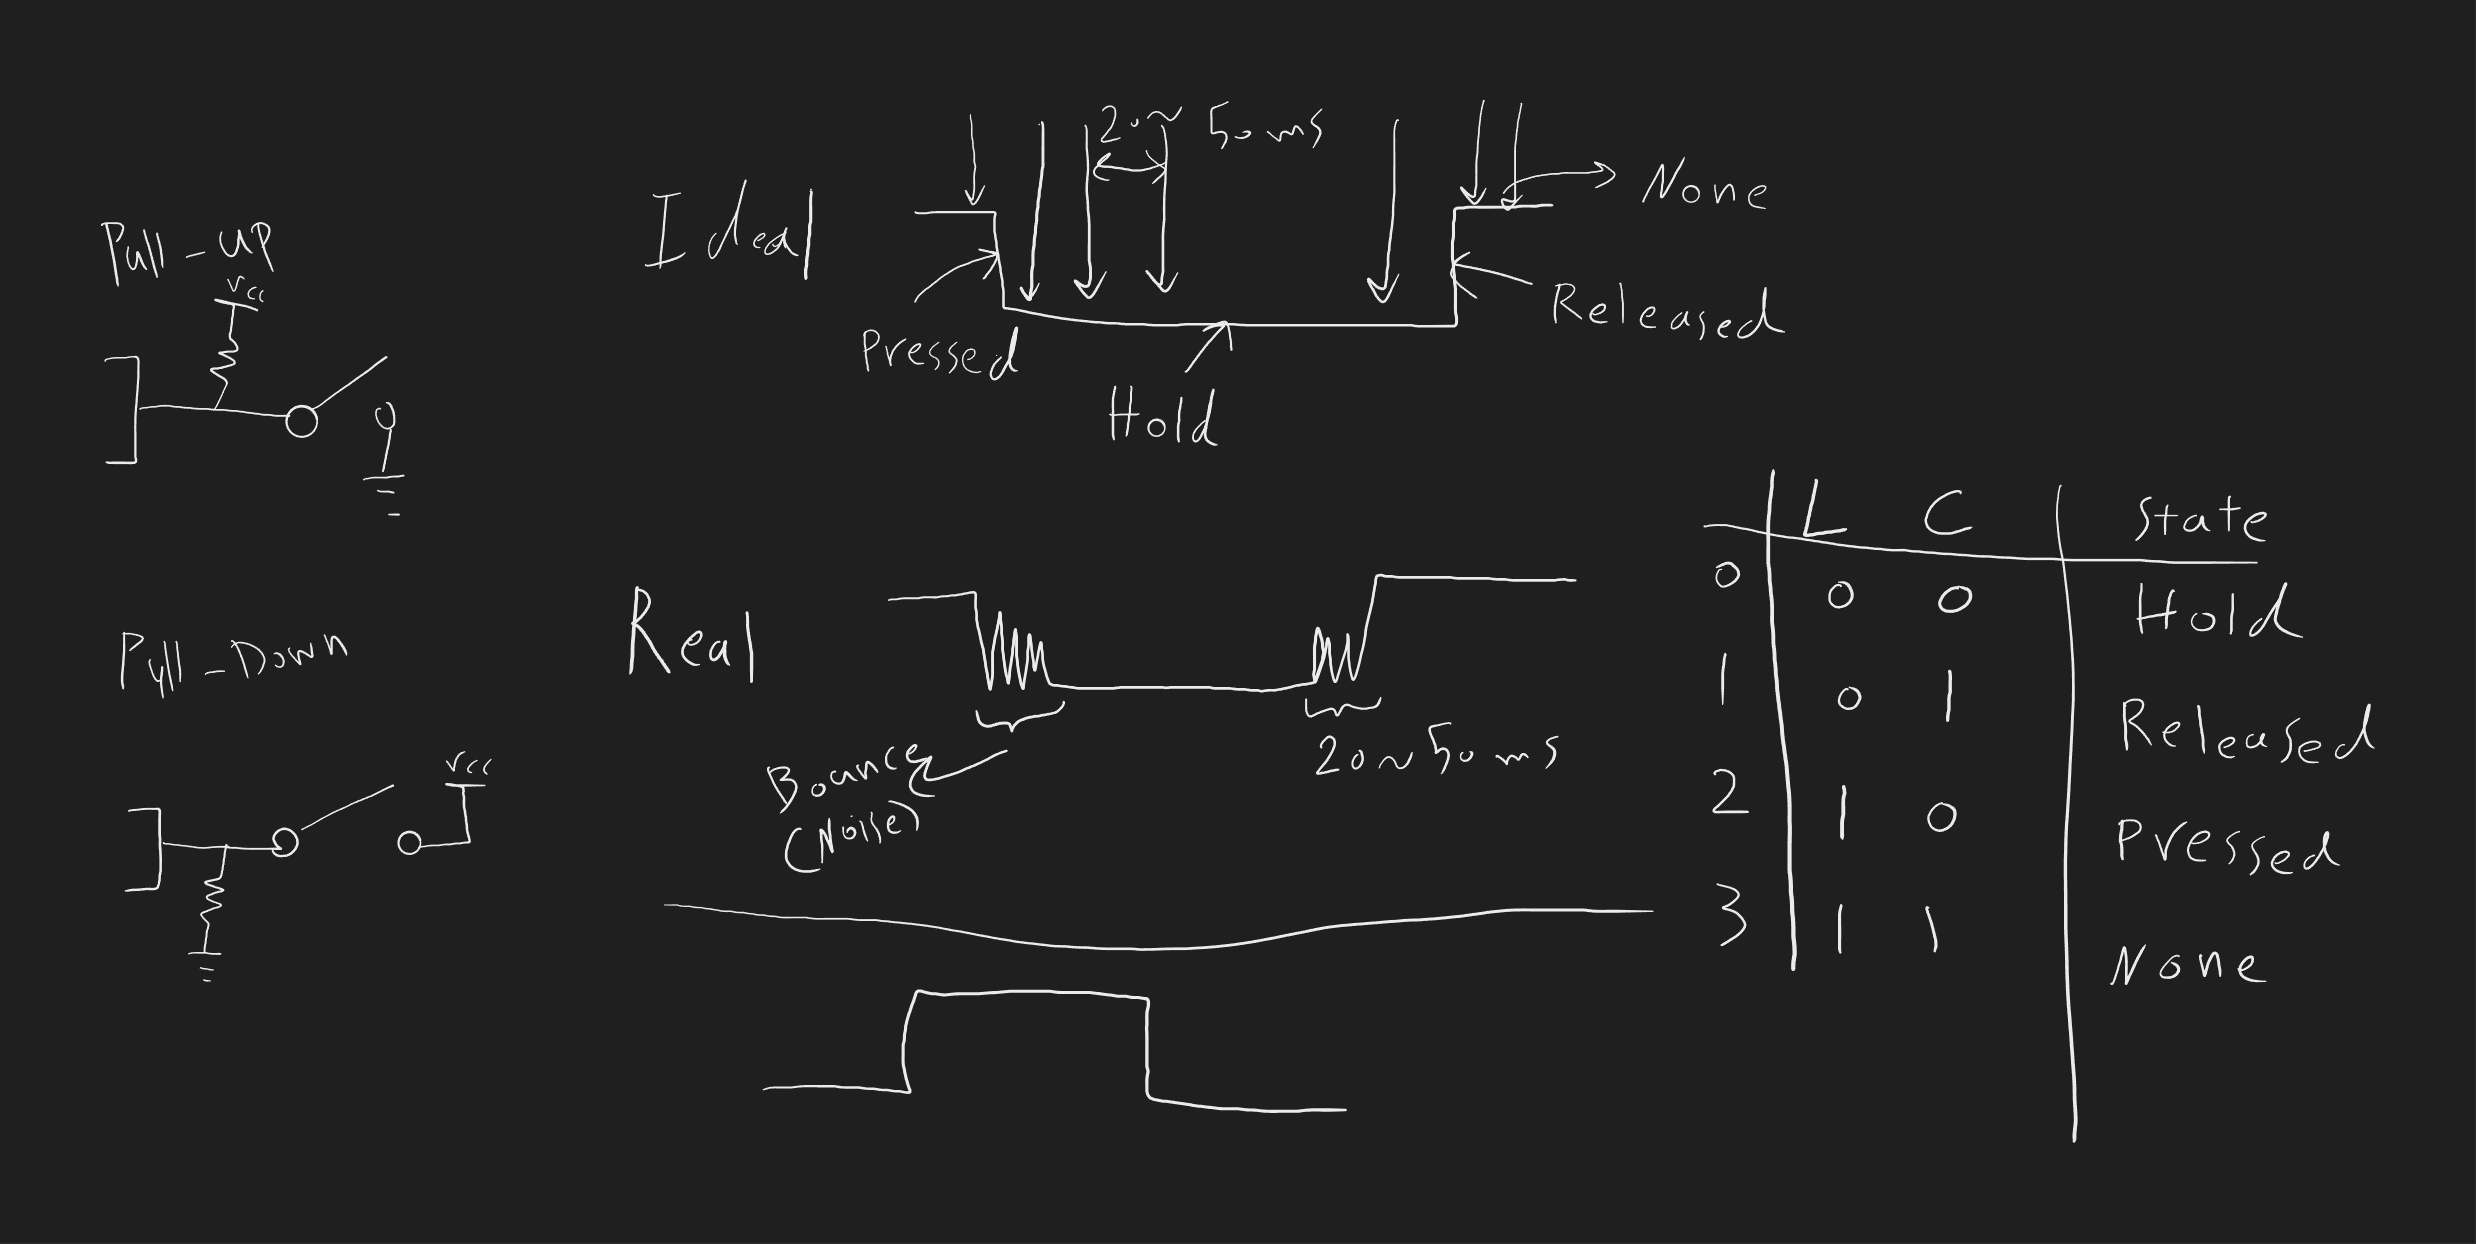 Pull-UP
Vcc
Pull-Down
Vcc
Ideal
20~ 50ms
None
Pressed
Hold
Released
Real
Bounce
(Noise)
20~50ms
L C State
0 0 0 Hold
1 0 1 Released
2 1 0 Pressed
3 1 1 None